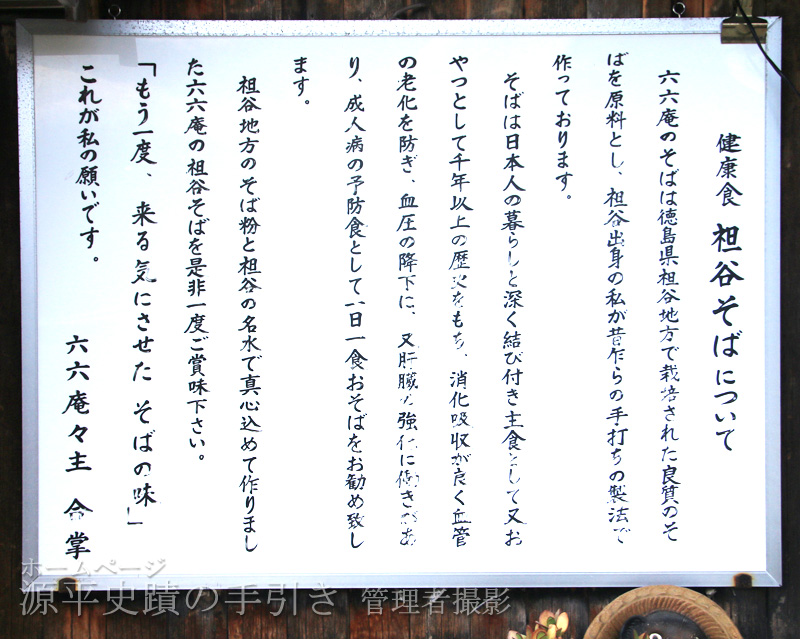 健康食 祖谷そばについて
六六庵のそばは徳島県祖谷地方で栽培された良質のそ
ばを原料とし、祖谷出身の私が昔乍らの手打ちの製法で
作っております。
そばは日本人の暮らしと深く結び付き主食として又お
やつとして千年以上の歴史をもち、消化吸収が良く血管
の老化を防ぎ、血圧の降下に、又肝臓の強化に働きがあ
り、成人病の予防食として一日一食おそばをお勧め致し
ます。
祖谷地方のそば粉と祖谷の名水で真心込めて作りまし
た六六庵の祖谷そばを是非一度ご賞味下さい。
「もう一度、来る気にさせた そばの味」
これが私の願いです。
六六庵々主 合掌
ホームページ
源平史蹟の手引き 管理者撮影